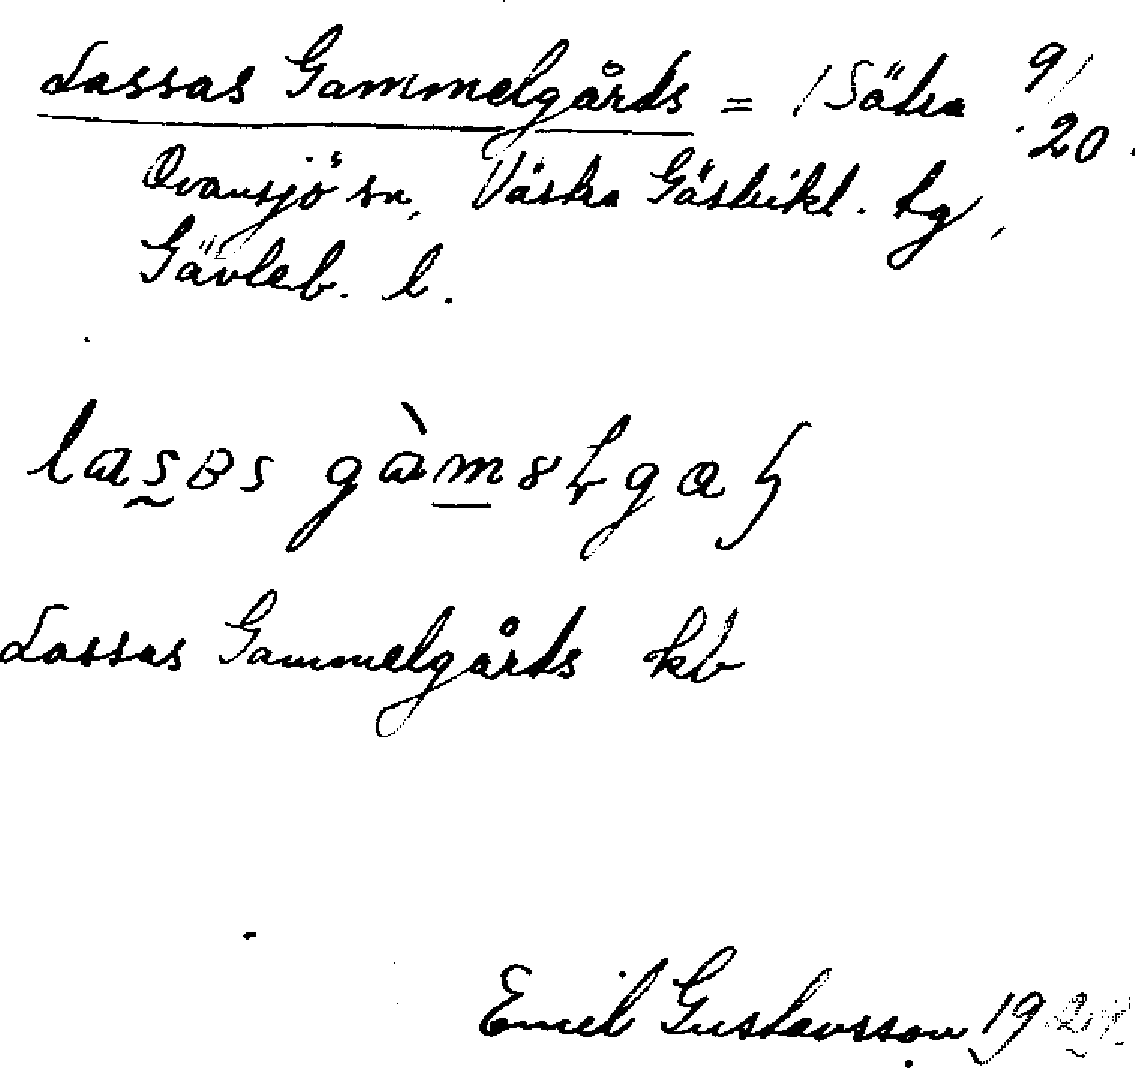 Lassas Gammelgårds = 1 Sätra 9/20.
Ovansjö sn, Västra Gästrikl. tg,
Gävleb. l.
Lassas Gammelgårds kb
Emil Gustavsson